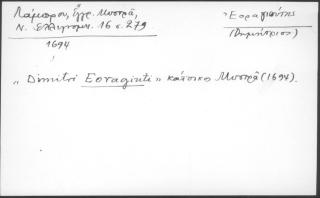 Λάμπρου, Ἔγγρ. Μυστρᾶ,
Ν. Ἑλληνομν. 16 σ. 279
Ἐοραγιούτης
(Δημήτριος)
1694
„ Dimitri Eoragiuti „ κάτοικο Μυστρᾶ (1694).